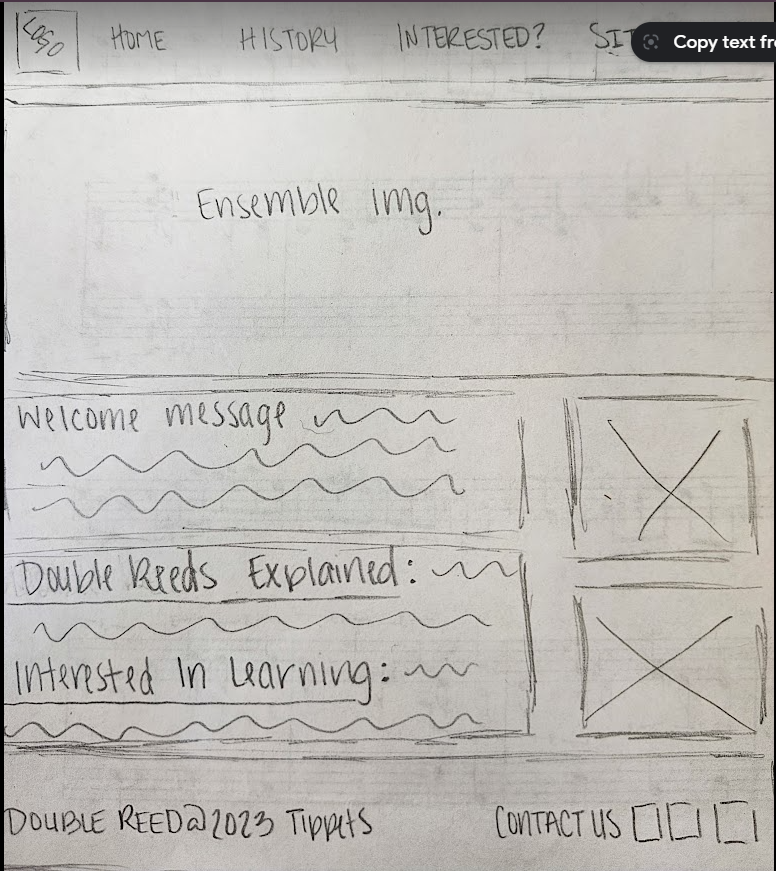 LOGO HOME HISTORY INTERESTED? SIT
Copy text fr
Ensemble img.
Welcome message
Double Reeds Explained:
Interested In Learning:
DOUBLE REED@2023 Tippets CONTACT US